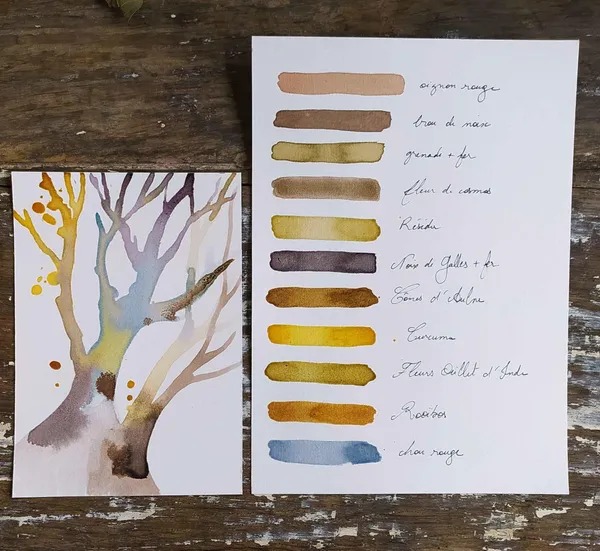 oignon rouge
brou de noix
grenade + fer
fleur de cosmos
Résidu
Noix de Galles + fer
Cônes d'Aulne
Curcuma
Fleurs Oeillet d'Inde
Rooibos
chou rouge